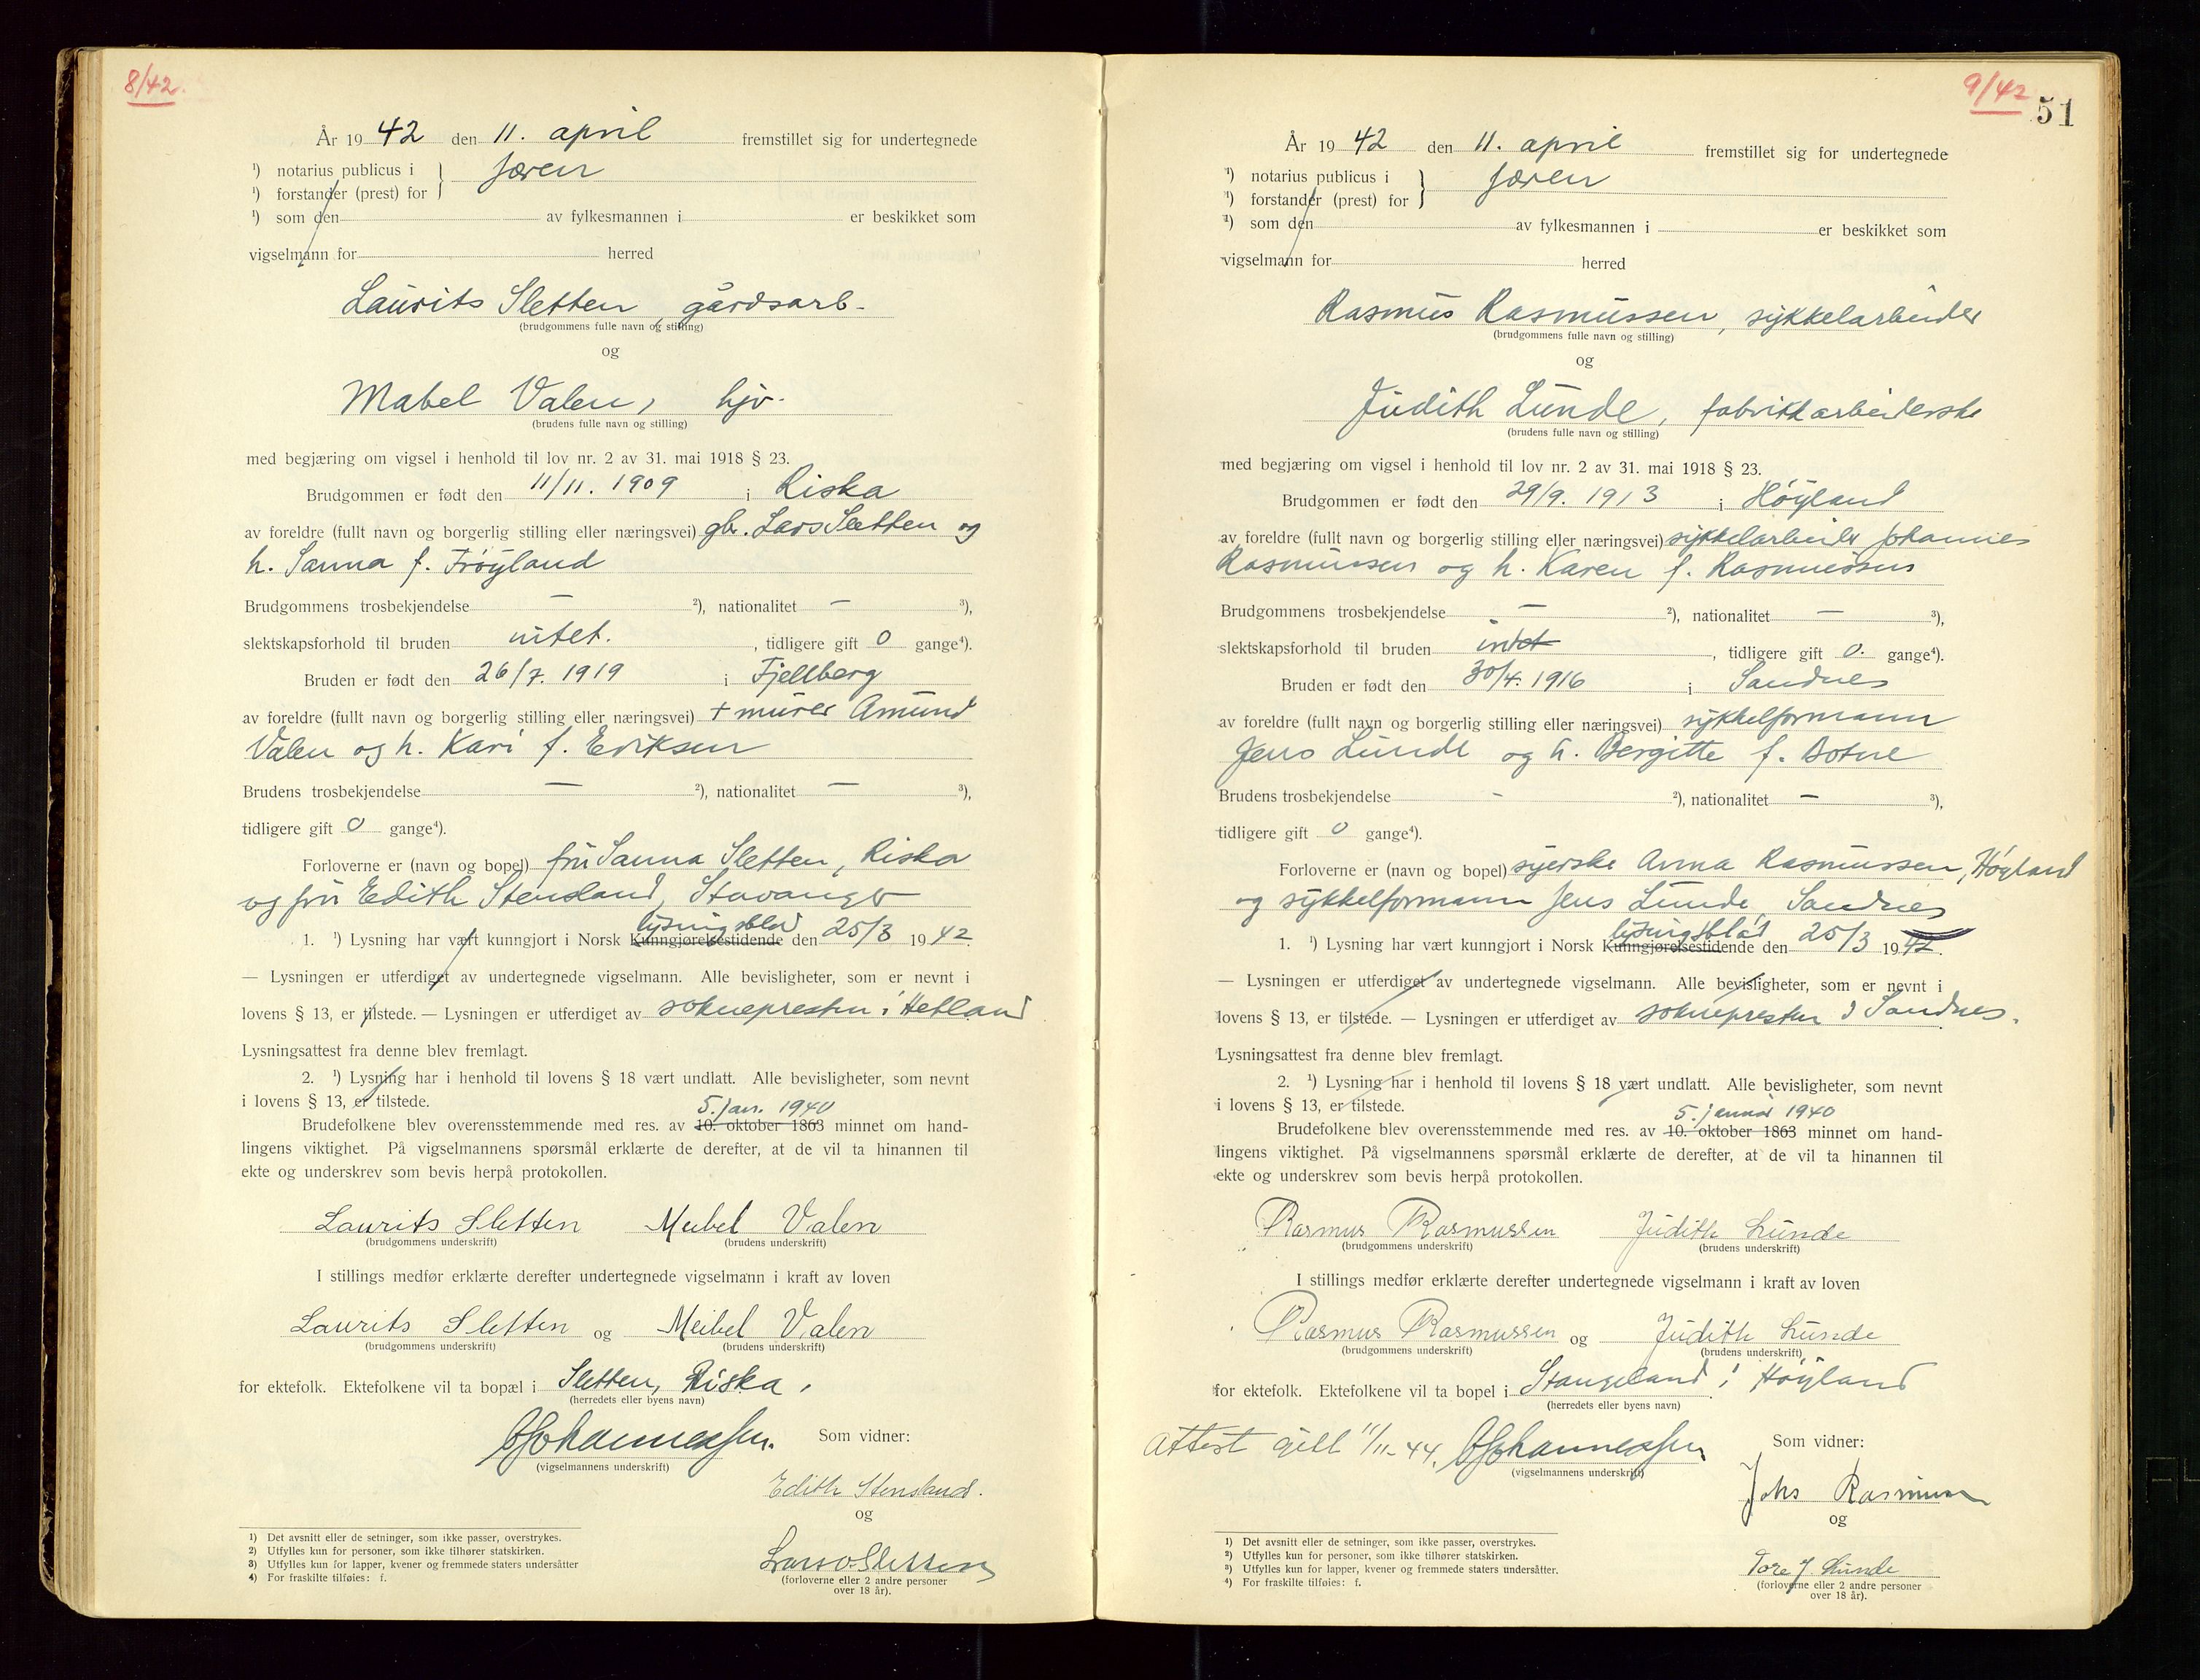 8/42.
År 1942 den 11. april fremstillet sig for undertegnede
¹) notarius publicus i } Jæren
¹) forstander (prest) for
¹) som den av fylkesmannen i er beskikket som
vigselmann for herred
Laurits Sletten, gårdsarb.
(brudgommens fulle navn og stilling)
og
Mabel Valen, hjv.
(brudens fulle navn og stilling)
med begjæring om vigsel i henhold til lov nr. 2 av 31. mai 1918 § 23.
Brudgommen er født den 11/11. 1909 i Riska
av foreldre (fullt navn og borgerlig stilling eller næringsvei) gbr. Lars Sletten og
h. Sanna f. Frøyland
Brudgommens trosbekjendelse — ²), nationalitet — ³),
slektskapsforhold til bruden intet. , tidligere gift 0 gange⁴).
Bruden er født den 26/7. 1919 i Fjellberg
av foreldre (fullt navn og borgerlig stilling eller næringsvei) + murer Amund
Valen og h. Kari f. Eriksen
Brudens trosbekjendelse — ²), nationalitet — ³),
tidligere gift 0 gange⁴).
Forloverne er (navn og bopel) fru Sanna Sletten, Riska
og fru Edith Stensland, Stavanger
lysingsblad
1. ¹) Lysning har vært kunngjort i Norsk Kunngjørelsestidende den 25/3 1942.
— Lysningen er utferdiget av undertegnede vigselmann. Alle bevisligheter, som er nevnt i
lovens § 13, er tilstede. — Lysningen er utferdiget av soknepresten i Hetland
Lysningsattest fra denne blev fremlagt.
2. ¹) Lysning har i henhold til lovens § 18 vært undlatt. Alle bevisligheter, som nevnt
i lovens § 13, er tilstede.
5. jan. 1940
Brudefolkene blev overensstemmende med res. av 10. oktober 1863 minnet om hand-
lingens viktighet. På vigselmannens spørsmål erklærte de derefter, at de vil ta hinannen til
ekte og underskrev som bevis herpå protokollen.
Laurits Sletten Meibel Valen
(brudgommens underskrift) (brudens underskrift)
I stillings medfør erklærte derefter undertegnede vigselmann i kraft av loven
Laurits Sletten og Meibel Valen
(brudgommens underskrift) (brudens underskrift)
for ektefolk. Ektefolkene vil ta bopæl i Sletten, Riska.
(herredets eller byens navn)
Johannessen. Som vidner:
(vigselmannens underskrift)
Edith Stensland.
og
Lars O Sletten
(forloverne eller 2 andre personer
over 18 år).
1) Det avsnitt eller de setninger, som ikke passer, overstrykes.
2) Utfylles kun for personer, som ikke tilhører statskirken.
3) Utfylles kun for lapper, kvener og fremmede staters undersåtter
4) For fraskilte tilføies: f.
9/42
51
År 1942 den 11. april fremstillet sig for undertegnede
¹) notarius publicus i } Jæren
¹) forstander (prest) for
¹) som den av fylkesmannen i er beskikket som
vigselmann for herred
Rasmus Rasmussen, sykkelarbeider
(brudgommens fulle navn og stilling)
og
Judith Lunde, fabrikkarbeiderske
(brudens fulle navn og stilling)
med begjæring om vigsel i henhold til lov nr. 2 av 31. mai 1918 § 23.
Brudgommen er født den 29/9. 1913 i Høyland
av foreldre (fullt navn og borgerlig stilling eller næringsvei) sykkelarbeider Johannes
Rasmussen og h. Karen f. Rasmussen
Brudgommens trosbekjendelse — ²), nationalitet — ³),
slektskapsforhold til bruden intet , tidligere gift 0. gange⁴).
Bruden er født den 30/4. 1916 i Sandnes
av foreldre (fullt navn og borgerlig stilling eller næringsvei) sykkelformann
Jens Lunde og h. Bergitte f. Botne
Brudens trosbekjendelse - ²), nationalitet — ³),
tidligere gift 0 gange⁴).
Forloverne er (navn og bopel) syerske Anna Rasmussen, Høyland
og sykkelformann Jens Lunde Sandnes
lysingsblad
1. ¹) Lysning har vært kunngjort i Norsk Kunngjørelsestidende den 25/3 1942.
— Lysningen er utferdiget av undertegnede vigselmann. Alle bevisligheter, som er nevnt i
lovens § 13, er tilstede. — Lysningen er utferdiget av soknepresten i Sandnes.
Lysningsattest fra denne blev fremlagt.
2. ¹) Lysning har i henhold til lovens § 18 vært undlatt. Alle bevisligheter, som nevnt
i lovens § 13, er tilstede.
5. januar 1940
Brudefolkene blev overensstemmende med res. av 10. oktober 1863 minnet om hand-
lingens viktighet. På vigselmannens spørsmål erklærte de derefter, at de vil ta hinannen til
ekte og underskrev som bevis herpå protokollen.
Rasmus Rasmussen Judith Lunde
(brudgommens underskrift) (brudens underskrift)
I stillings medfør erklærte derefter undertegnede vigselmann i kraft av loven
Rasmus Rasmussen og Judith Lunde
(brudgommens underskrift) (brudens underskrift)
for ektefolk. Ektefolkene vil ta bopel i Stangeland i Høyland
(herredets eller byens navn)
Attest gitt 11/11-44. Johannessen Som vidner:
(vigselmannens underskrift)
Johs Rasmussen
og
Tore J. Lunde
(forloverne eller 2 andre personer
over 18 år).
¹) Det avsnitt eller de setninger, som ikke passer, overstrykes.
²) Utfylles kun for personer, som ikke tilhører statskirken.
³) Utfylles kun for lapper, kvener og fremmede staters undersåtter.
⁴) For fraskilte tilføies: f.